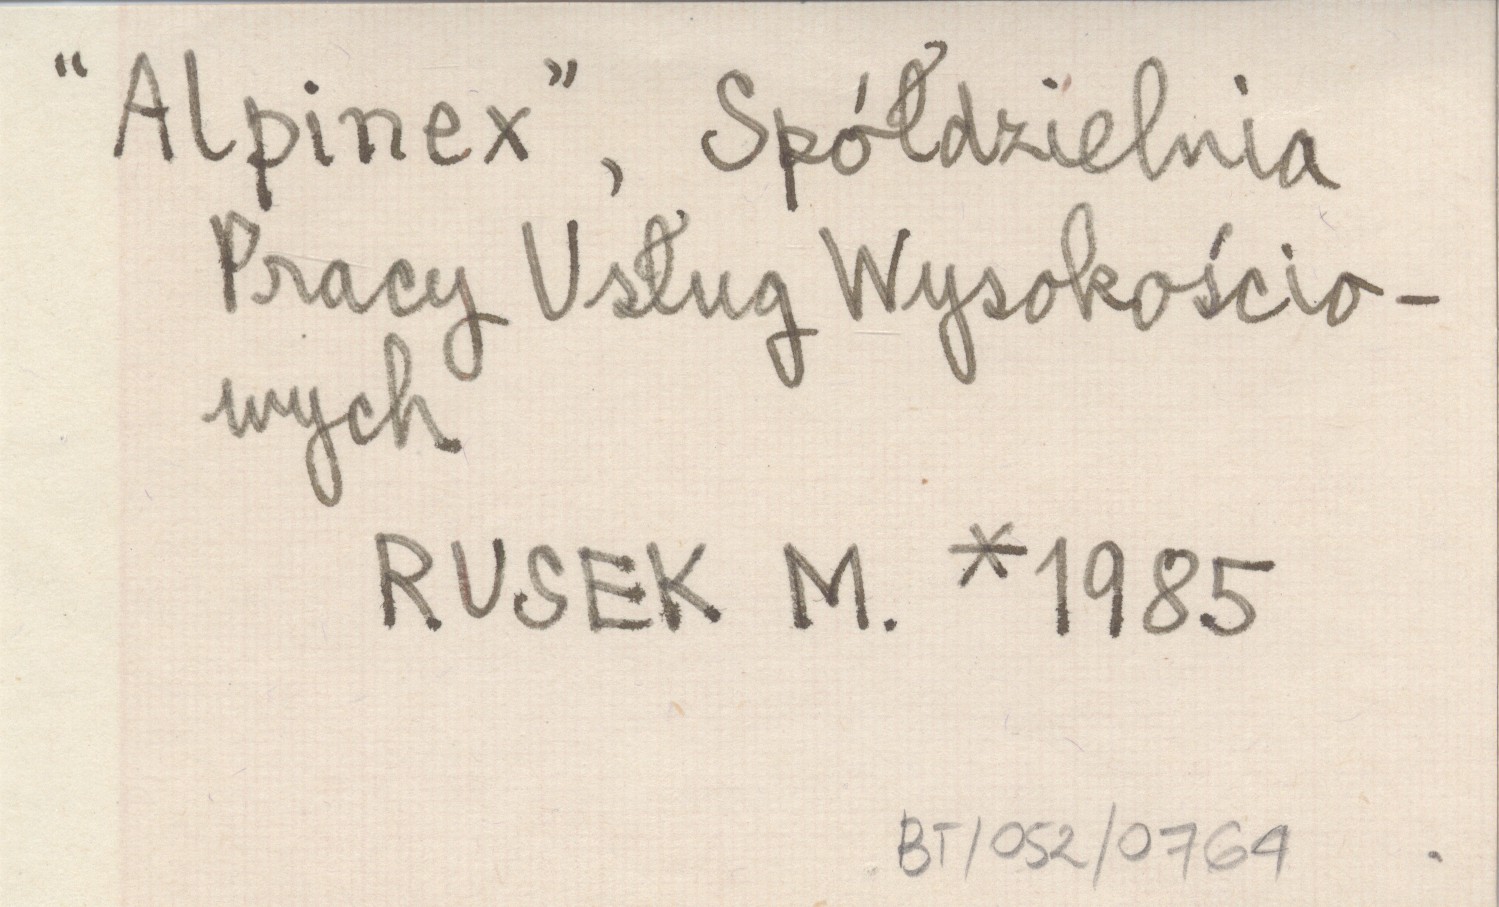 “Alpinex”, Spółdzielnia
Pracy Usług Wysokościo-
wych
RUSEK M. *1985
BT/052/0764